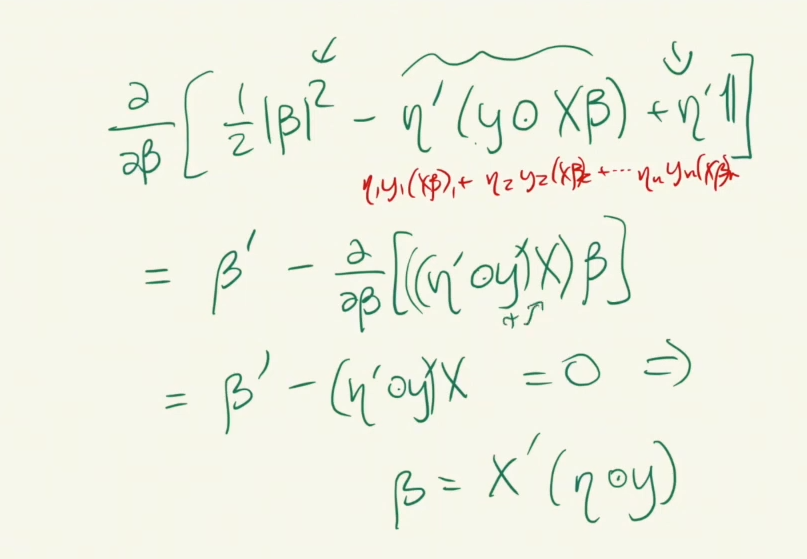 ∂/∂β [ 1/2 |β|² − η′(y⊙Xβ) + η′𝟙 ]
η₁y₁(Xβ)₁ + η₂y₂(Xβ)₂ + ⋯ ηₙyₙ(Xβ)ₙ
= β′ − ∂/∂β [((η′⊙y′)X)β]
= β′ − (η′⊙y′)X = 0 ⇒
β = X′(η⊙y)